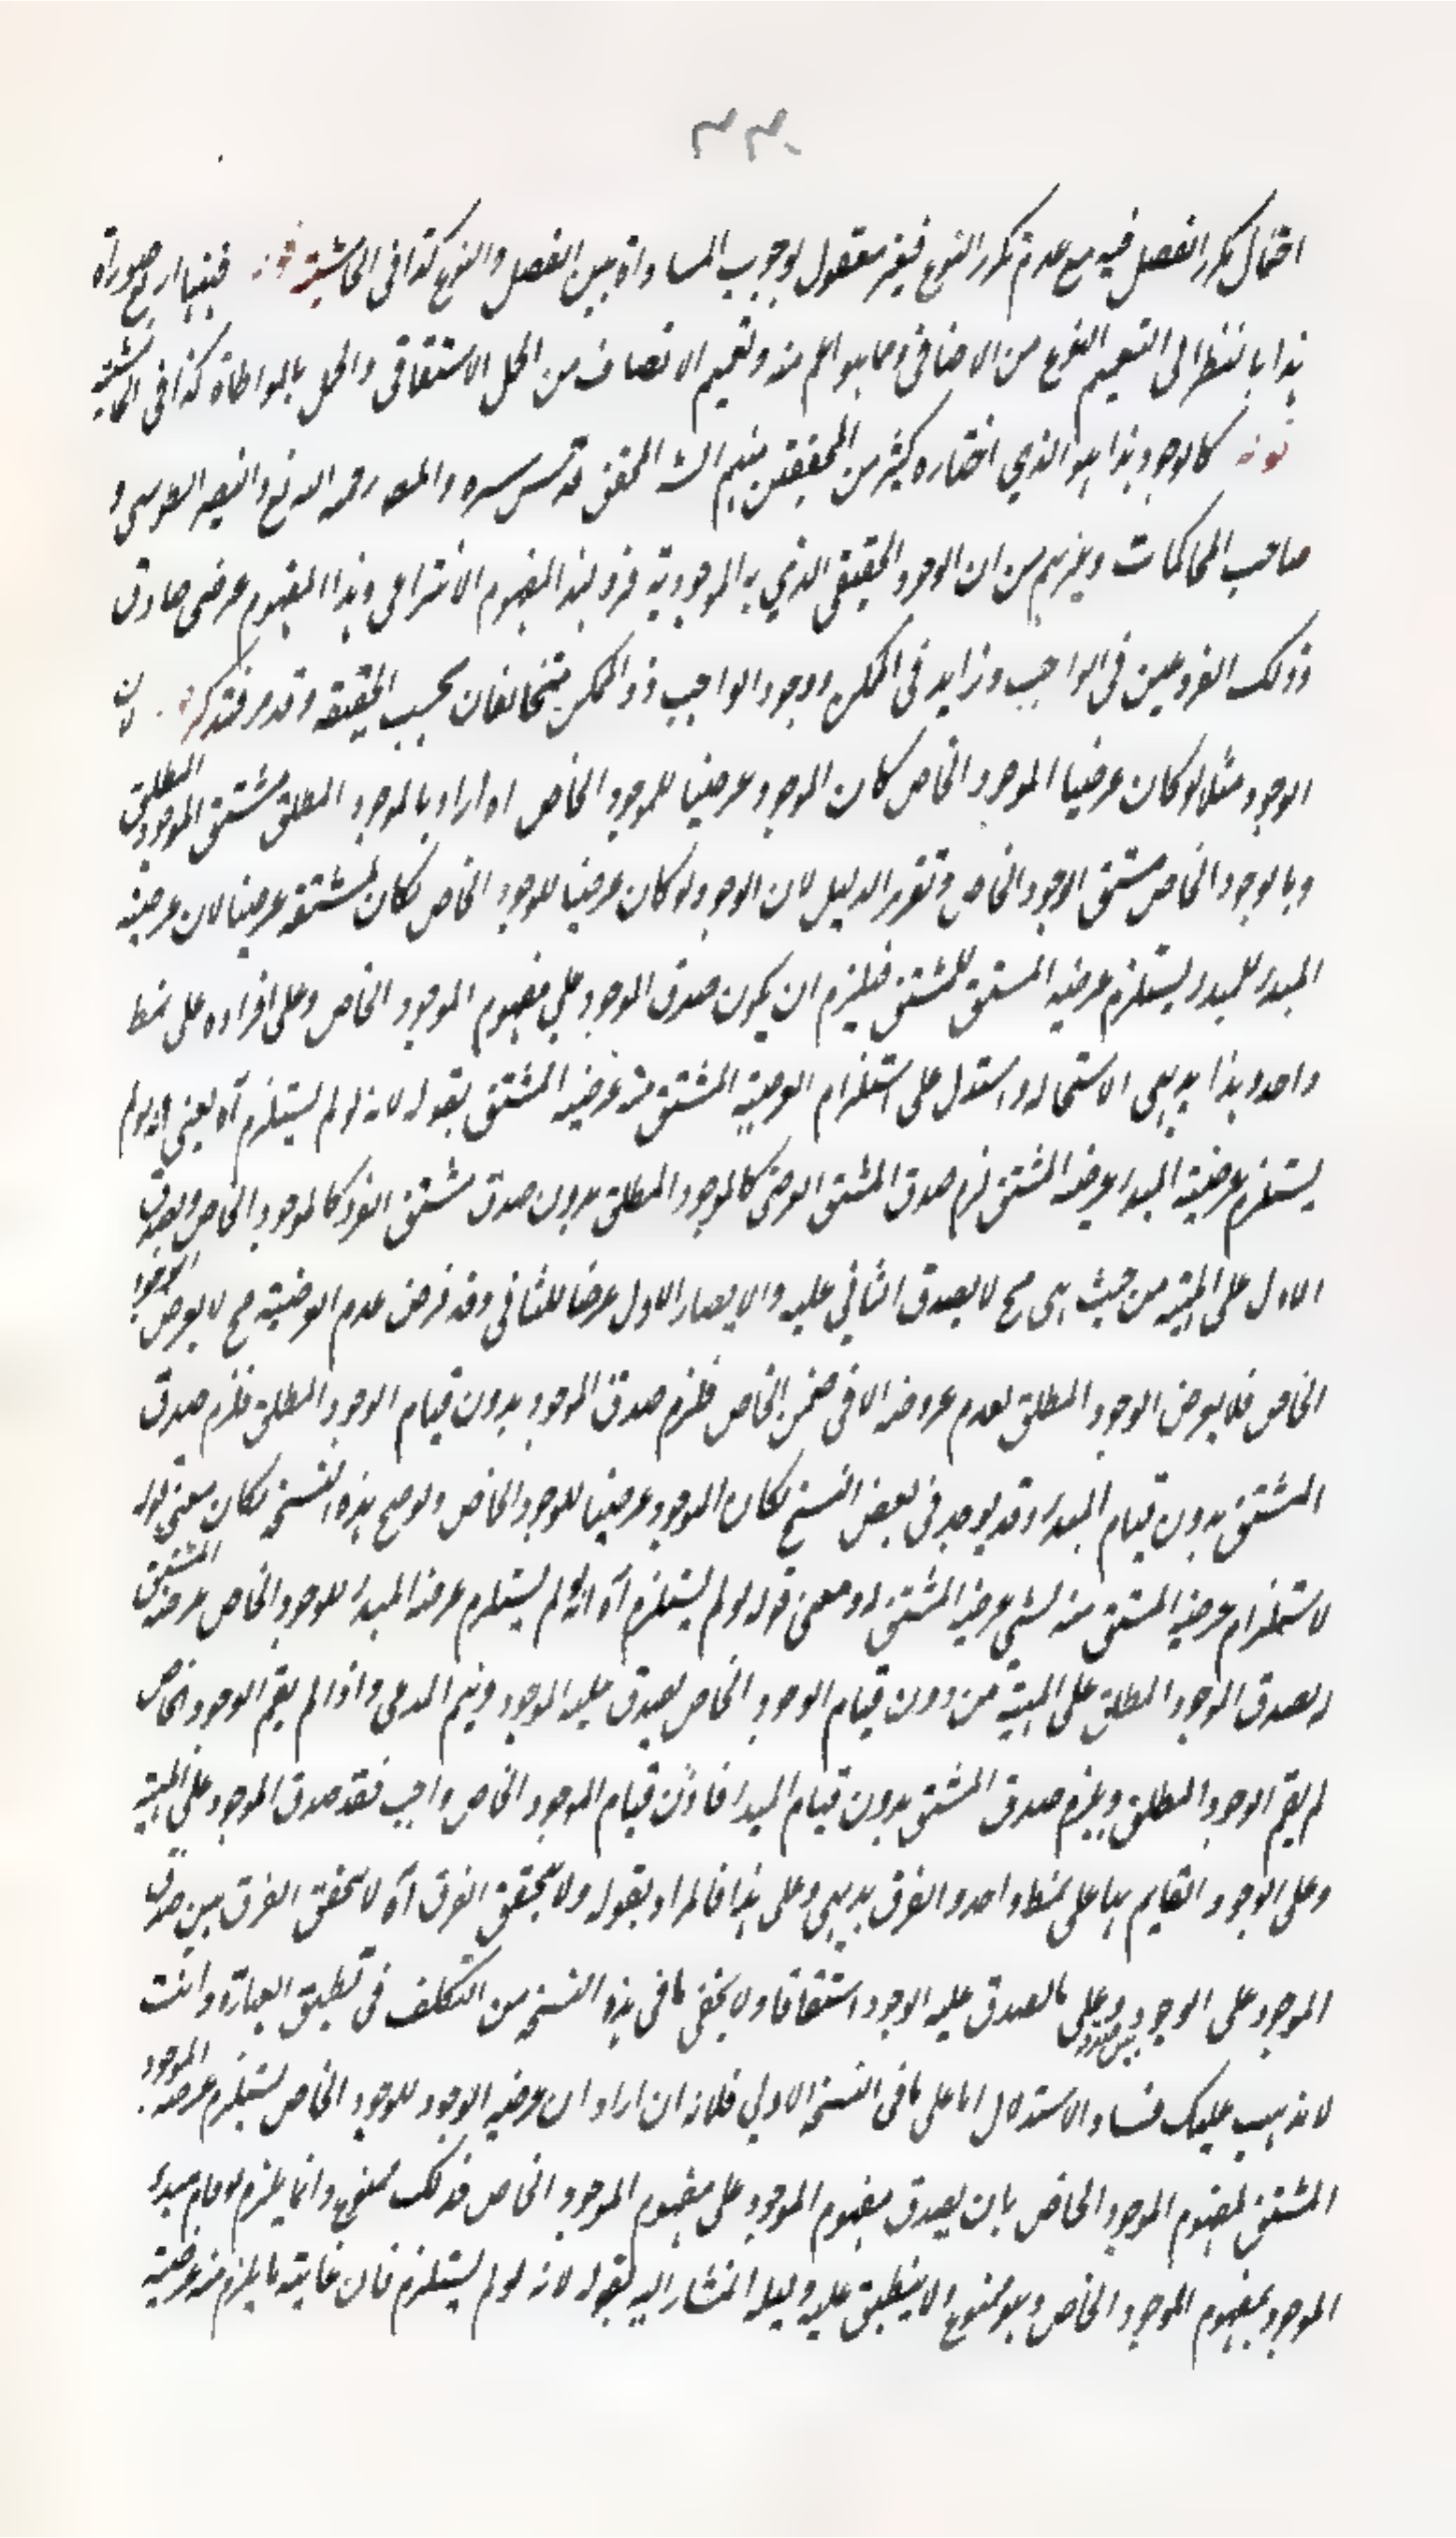 احتمال تكرر الفصل فيه مع عدم تكرر النوع فغير معقول لوجوب المساواة بين الفصل والنوع كذا فى الحاشية قوله فبينها اربع صورة
هذا بالنظر الى التعميم النوع من الاضافى وما هو اعم منه وتعميم الاتصاف من الحمل الاشتقاقى والحمل بالمواطاة كذا فى الحاشية
قوله كالوجود هذا هو الذي اختاره كثير من المحققين منهم الش المحقق قدس سره والمصـ رحمه الله والنصير الطوسى و
صاحب المحاكمات وغيرهم من ان الوجود الحقيقى الذي به الموجودية فرد لهذا المفهوم الانتزاعى وهذا المفهوم عرضى صادق
وذلك الفرد عين فى الواجب وزايد فى الممكن ووجود الواجب والممكن متخالفان بحسب الحقيقة وقد مر فتذكر قوله لان
الوجود مثلا لو كان عرضيا الموجود الخاص كان الموجود عرضيا للموجود الخاص اه اراد بالموجود المطلق مشتق الموجود المطلق
وبالوجود الخاص مشتق الوجود الخاص وتقرير الدليل لان الوجود لو كان عرضيا للوجود الخاص لكان المشتقه عرضيا لان عرضية
المبدء للمبدء يستلزم عرضية المشتق للمشتق فيلزم ان يكون صدق الموجود على مفهوم الموجود الخاص وعلى افراده على نمط
واحد وهذا بديهى الاستحاله واستدل على استلزام العرضية المشتق منه عرضية المشتق بقوله لانه لو لم يستلزم آه يعنى انه لو لم
يستلزم عرضية المبدء عرضية المشتق لزم صدق المشتق العرضى كالموجود المطلق بدون صدق مشتق الفرد كالموجود الخاص فيصدق
الاول على المهية من حيث هى هى لا يصدق الثاني عليه والا يصار الاول عرضا للثانى وقد فرض عدم العرضية مح لا يعرض الوجود
الخاص فلا يعرض الوجود المطلق لعدم عروضه الا فى ضمن الخاص فلزم صدق الموجود بدون قيام الوجود المطلق فلزم صدق
المشتق بدون قيام المبدء وقد يوجد فى بعض النسخ لكان الموجود عرضيا للوجود الخاص ولو صح هذه النسخة لكان معنى قوله
لاستلزام عرضية المشتق منه لشى عرضية المشتق له ومعنى قوله لو لم يستلزم آه انه لو لم يستلزم عرضية المبدء للوجود الخاص عرضية المشتق
له لصدق الموجود المطلق على المهية من دون قيام الوجود الخاص يصدق عليه الموجود ويتم المدعى واذا لم يقم الوجود الخاص
لم يقم الوجود المطلق ويلزم صدق المشتق بدون قيام المبدء فاذن قيام الموجود الخاص واجب فقد صدق الموجود على المهية
وعلى الوجود القايم بها على نمط واحد والفرق بديهى وعلى هذا فالمراد بقوله ولا يتحقق الفرق آه لا يتحقق الفرق بين صدق
الموجود على الوجود وبين صدقه على ما لصدق عليه الوجود اشتقاقا ولا يخفى ما فى هذه النسخة من التكلف فى تطبيق العبارة وانت
لا يذهب عليك فساد الاستدلال اما على ما فى النسخة الاولى فلانه ان اراد ان عرضية الوجود للوجود الخاص يستلزم عرضية الموجود
المشتق لمفهوم الموجود الخاص بان يصدق مفهوم الموجود على مفهوم الموجود الخاص فذلك ممنوع وانما يلزم لو قام مبدء
الموجود بمفهوم الموجود الخاص وهو ممنوع ولا ينطبق عليه دليله المشار اليه بقوله لانه لو لم يستلزم فان غاية ما يلزم منه عرضية